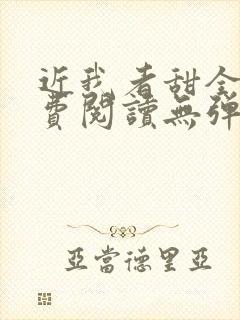 近我者甜全
費閱讀無彈
亞當德里亞